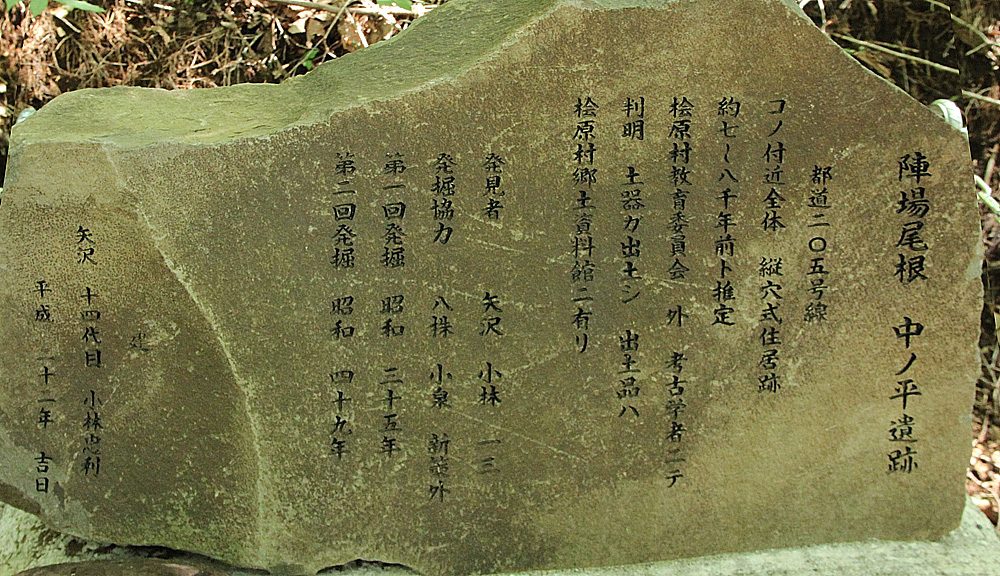 陣場尾根 中ノ平遺跡
都道二〇五号線
コノ付近全体 縦穴式住居跡
約七〜八千年前ト推定
桧原村教育委員会 外 考古学者ニテ
判明 土器カ出土シ 出土品ハ
桧原村郷土資料館ニ有リ
発見者 矢沢 小林 一三
発掘協力 八株 小泉 外
第一回発掘 昭和 二十五年
第二回発掘 昭和 四十九年
建
矢沢 十四代目 小林忠利
平成 二十一年 吉日